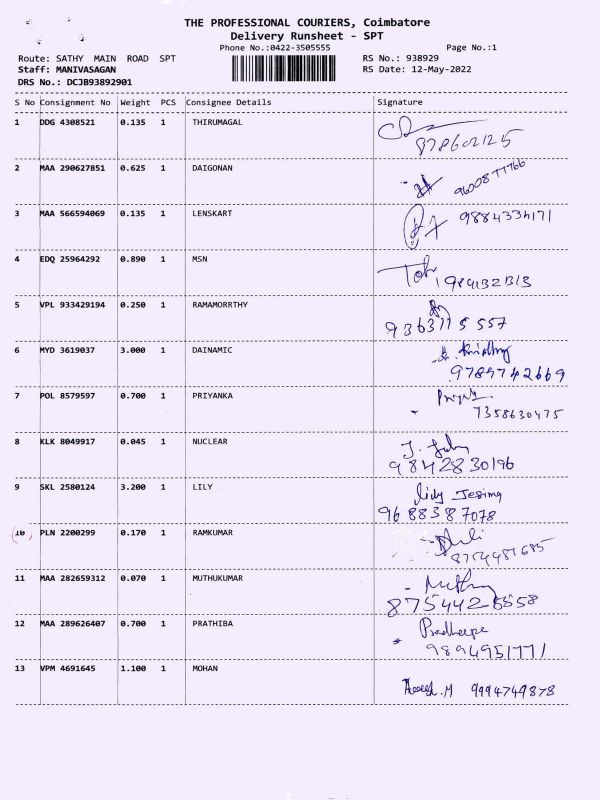 THE PROFESSIONAL COURIERS, Coimbatore
Delivery Runsheet - SPT
Phone No.:0422-3505555
Page No.:1
Route: SATHY MAIN ROAD SPT
RS No.: 938929
Staff: MANIVASAGAN
RS Date: 12-May-2022
DRS No.: DCJB93892901
S No Consignment No Weight PCS Consignee Details Signature
1 DDG 4308521 0.135 1 THIRUMAGAL
2 MAA 290627851 0.625 1 DAIGONAN
3 MAA 566594069 0.135 1 LENSKART
9884334171
4 EDQ 25964292 0.890 1 MSN
5 VPL 933429194 0.250 1 RAMAMORRTHY
9363115557
6 MYD 3619037 3.000 1 DAINAMIC
9789742669
7 POL 8579597 0.700 1 PRIYANKA
7358630475
8 KLK 8049917 0.045 1 NUCLEAR
9842830196
9 SKL 2580124 3.200 1 LILY
Lidy Jesima
9688387078
10 PLN 2200299 0.170 1 RAMKUMAR
11 MAA 282659312 0.070 1 MUTHUKUMAR
12 MAA 289626407 0.700 1 PRATHIBA
9894951771
13 VPM 4691645 1.100 1 MOHAN
9994749878